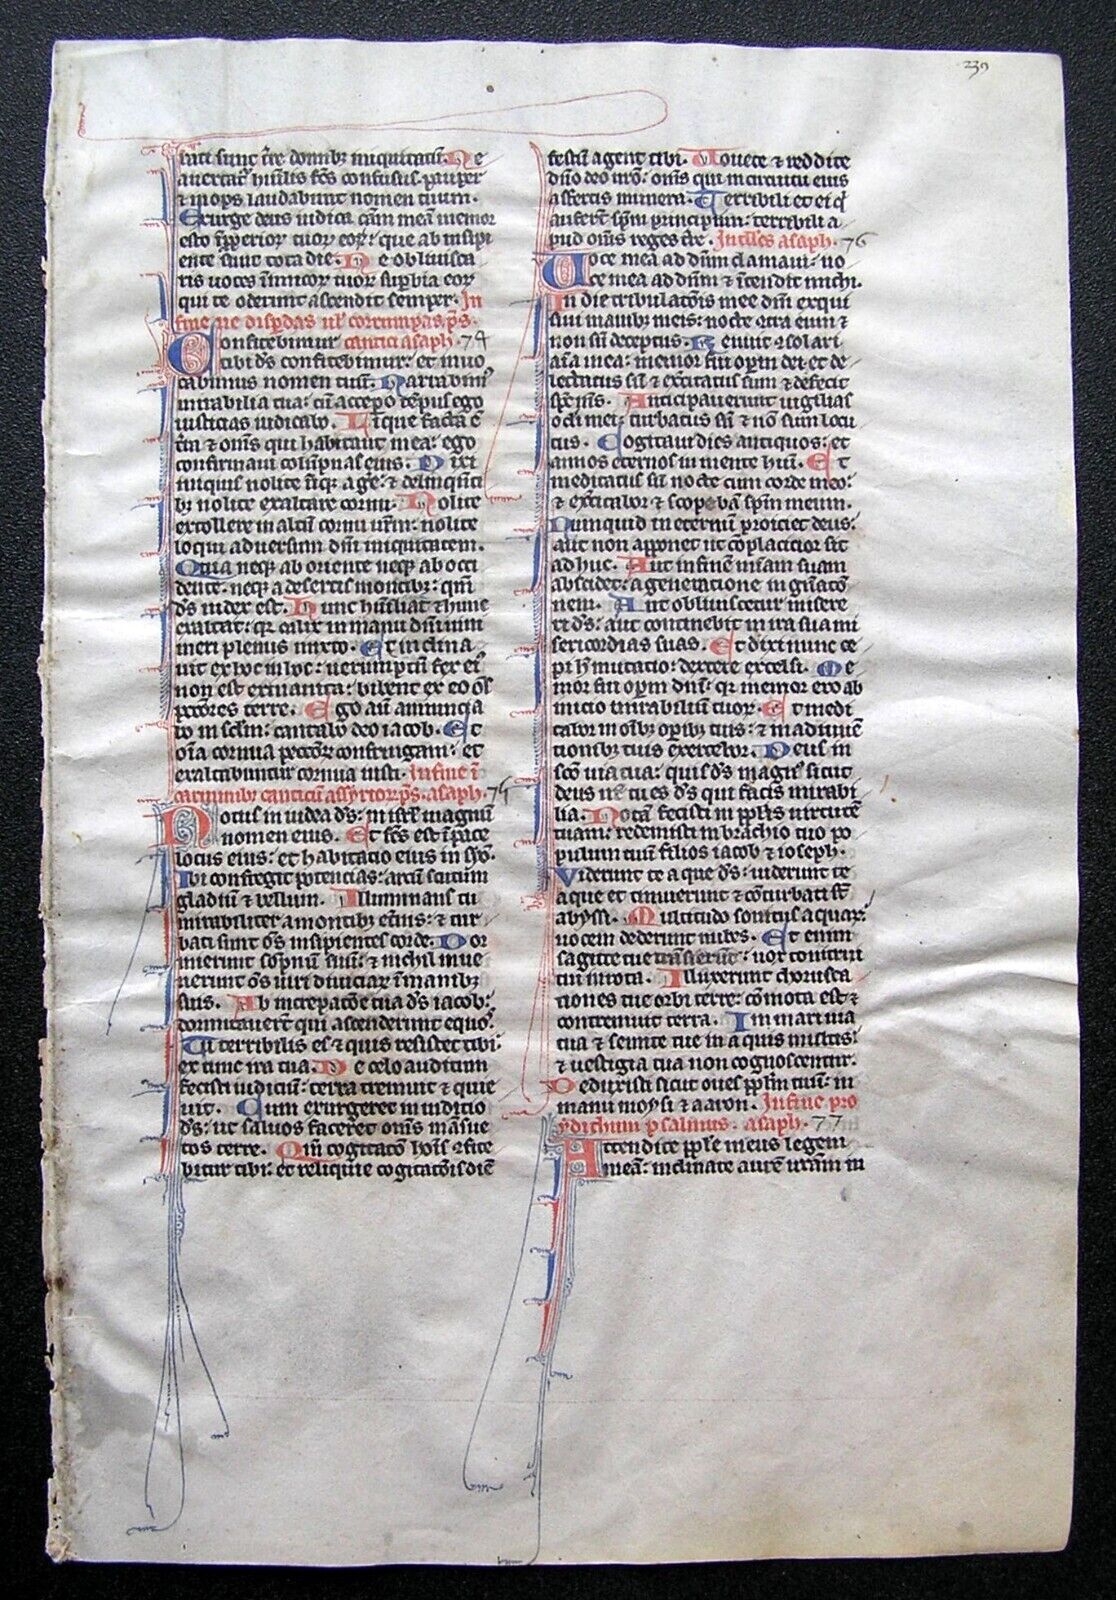 239
rati sunt t̄re domibꝫ iniquitatū. Ne
auertat᷑ hūilis fc̄s confusus. pauper
⁊ inops laudabunt nomen tuum.
Exurge deus iudica cam̄ meā memor
esto īꝓperioꝝ tuoꝝ eoꝝ: que ab insipi
ente sunt tota die. Ne obliuisca
ris uoces inimicoꝝ tuoꝝ suꝑbia eoꝝ
qui te oderunt ascendit semper. In
fine ne disperdas ul̓ corrumpas p̄s.
Confitebimur cantici asaph. 74
tibi d̄s confitebimur: et inuo
cabimus nomen tuū. Narrabim᷒
mirabilia tua: cū accepo tēpus ego
iusticias iudicabo. Liq̄facta ē
t̄ra ⁊ om̄s qui habitant in ea: ego
confirmaui colūpnas eius. Dixi
iniquis nolite iniq̄ agē: ⁊ delinqn̄ti
bꝫ nolite exaltare cornu. Nolite
extollere in altū cornu ur̄m: nolite
loqui aduersum dm̄ iniquitatem.
Quia neqꝫ ab oriente neqꝫ ab occi
dente. neqꝫ a desertis montibꝫ: qm̄
d̄s iudex est. Hunc hūiliat ⁊ hunc
exaltat: qꝛ calix in manu dn̄i uini
meri plenus mixto. Et inclina
uit ex hoc in hoc: uerumptn̄ fex ei᷒
non est exinanita: bibent ex eo om̄s
pctōres terre. Ego aū annuncia
bo in sclm̄: cantabo deo iacob. Et
oīa cornua pctōrꝝ confringam: et
exaltabuntur cornua iusti. In fine ī
carminibꝫ canticū assyrioꝝ p̄s. asaph. 75
Notus in iudea d̄s: in isrl̓ magnū
nomen eius. Et fc̄s est ī pace
locus eius: et habitacio eius in syō.
Ibi confregit potencias: arcū scutum
gladiū ⁊ bellum. Illuminans tu
mirabiliter a montibꝫ et̄nis: ⁊ tur
bati sunt om̄s insipientes corde. Dor
mierunt sompnū suū: ⁊ nichil inue
nerunt om̄s uiri diuiciaꝝ ī manibꝫ
suis. Ab increpatōe tua d̄s iacob:
dormitauerūt qui ascenderunt equos.
Tu terribilis es ⁊ quis resistet tibi:
ex tunc ira tua. De celo auditum
fecisti iudiciū: terra tremuit ⁊ quie
uit. Cum exurgeret in iudicio
d̄s: ut saluos faceret om̄s mansue
tos terre. Qm̄ cogitatō hoīs ꝯfite
bitur tibi: et reliquie cogitatōis diē
festū agent tibi. Uouete ⁊ reddite
dn̄o deo ur̄o: om̄s qui in circuitu eius
affertis munera. Terribili et ei qͥ
aufert spm̄ principum: terribili a
pud om̄s reges t̄re. Intellc̄s asaph. 76
Uoce mea ad dn̄m clamaui: uo
ce mea ad dn̄m ⁊ intendit michi.
In die tribulatōis mee dm̄ exqui
siui manibꝫ meis: nocte ꝯtra eum ⁊
non sū deceptus. Renuit ꝯsolari
aīa mea: memor fui dei et de
lectatus sū ⁊ exercitatus sum ⁊ defecit
sps̄ m̄s. Anticipauerunt uigilias
oculi mei: turbatus sū ⁊ nō sum locu
tus. Cogitaui dies antiquos: et
annos eternos in mente hūi. Et
meditatus sū nocte cum corde meo:
⁊ exercitabor ⁊ scopebā spm̄ meum.
Nunquid in eternū proiciet deus:
aut non apponet ut cōplacicior sit
adhuc. Aut in finē mīam suam
abscidet: a generatione in gn̄atō
nem. Aut obliuiscetur misere
ri d̄s: aut continebit in ira sua mi
sericordias suas. Et dixi nunc ce
pi h̄ mutacio: dextere excelsi. Me
mor fui oꝑum dn̄i: qꝛ memor ero ab
inicio mirabilium tuoꝝ. Et medi
tabor in om̄ibꝫ oꝑibꝫ tuis: ⁊ in adinuen
tionibꝫ tuis exercebor. Deus in
scō uia tua: quis d̄s magn᷒ sicut
deus nr̄ tu es d̄s qui facis mirabi
lia. Notā fecisti in ppl̄is uirtutē
tuam: redemisti in brachio tuo po
pulum tuū filios iacob ⁊ ioseph.
Viderunt te aque d̄s: uiderunt te
aque et timuerunt ⁊ cōturbati sūt
abyssi. Multitudo sonitus aquaꝝ:
uocem dederunt nubes. Et enim
sagitte tue transeunt: uox tonitrui
tui in rota. Illuxerunt chorusca
tiones tue orbi terre: cōmota est ⁊
contremuit terra. In mari uia
tua ⁊ semite tue in aquis multis:
⁊ uestigia tua non cognoscentur.
Deduxisti sicut oues ppl̄m tuū: in
manu moysi ⁊ aaron. In fine pro
ydithum psalmus. asaph. 77
Attendite ppl̄e meus legem
meā: inclinate aurē urām in